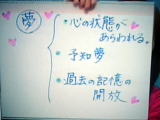 夢
・心の状態が
あらわれる。
・予知夢
・過去の記憶の
開放